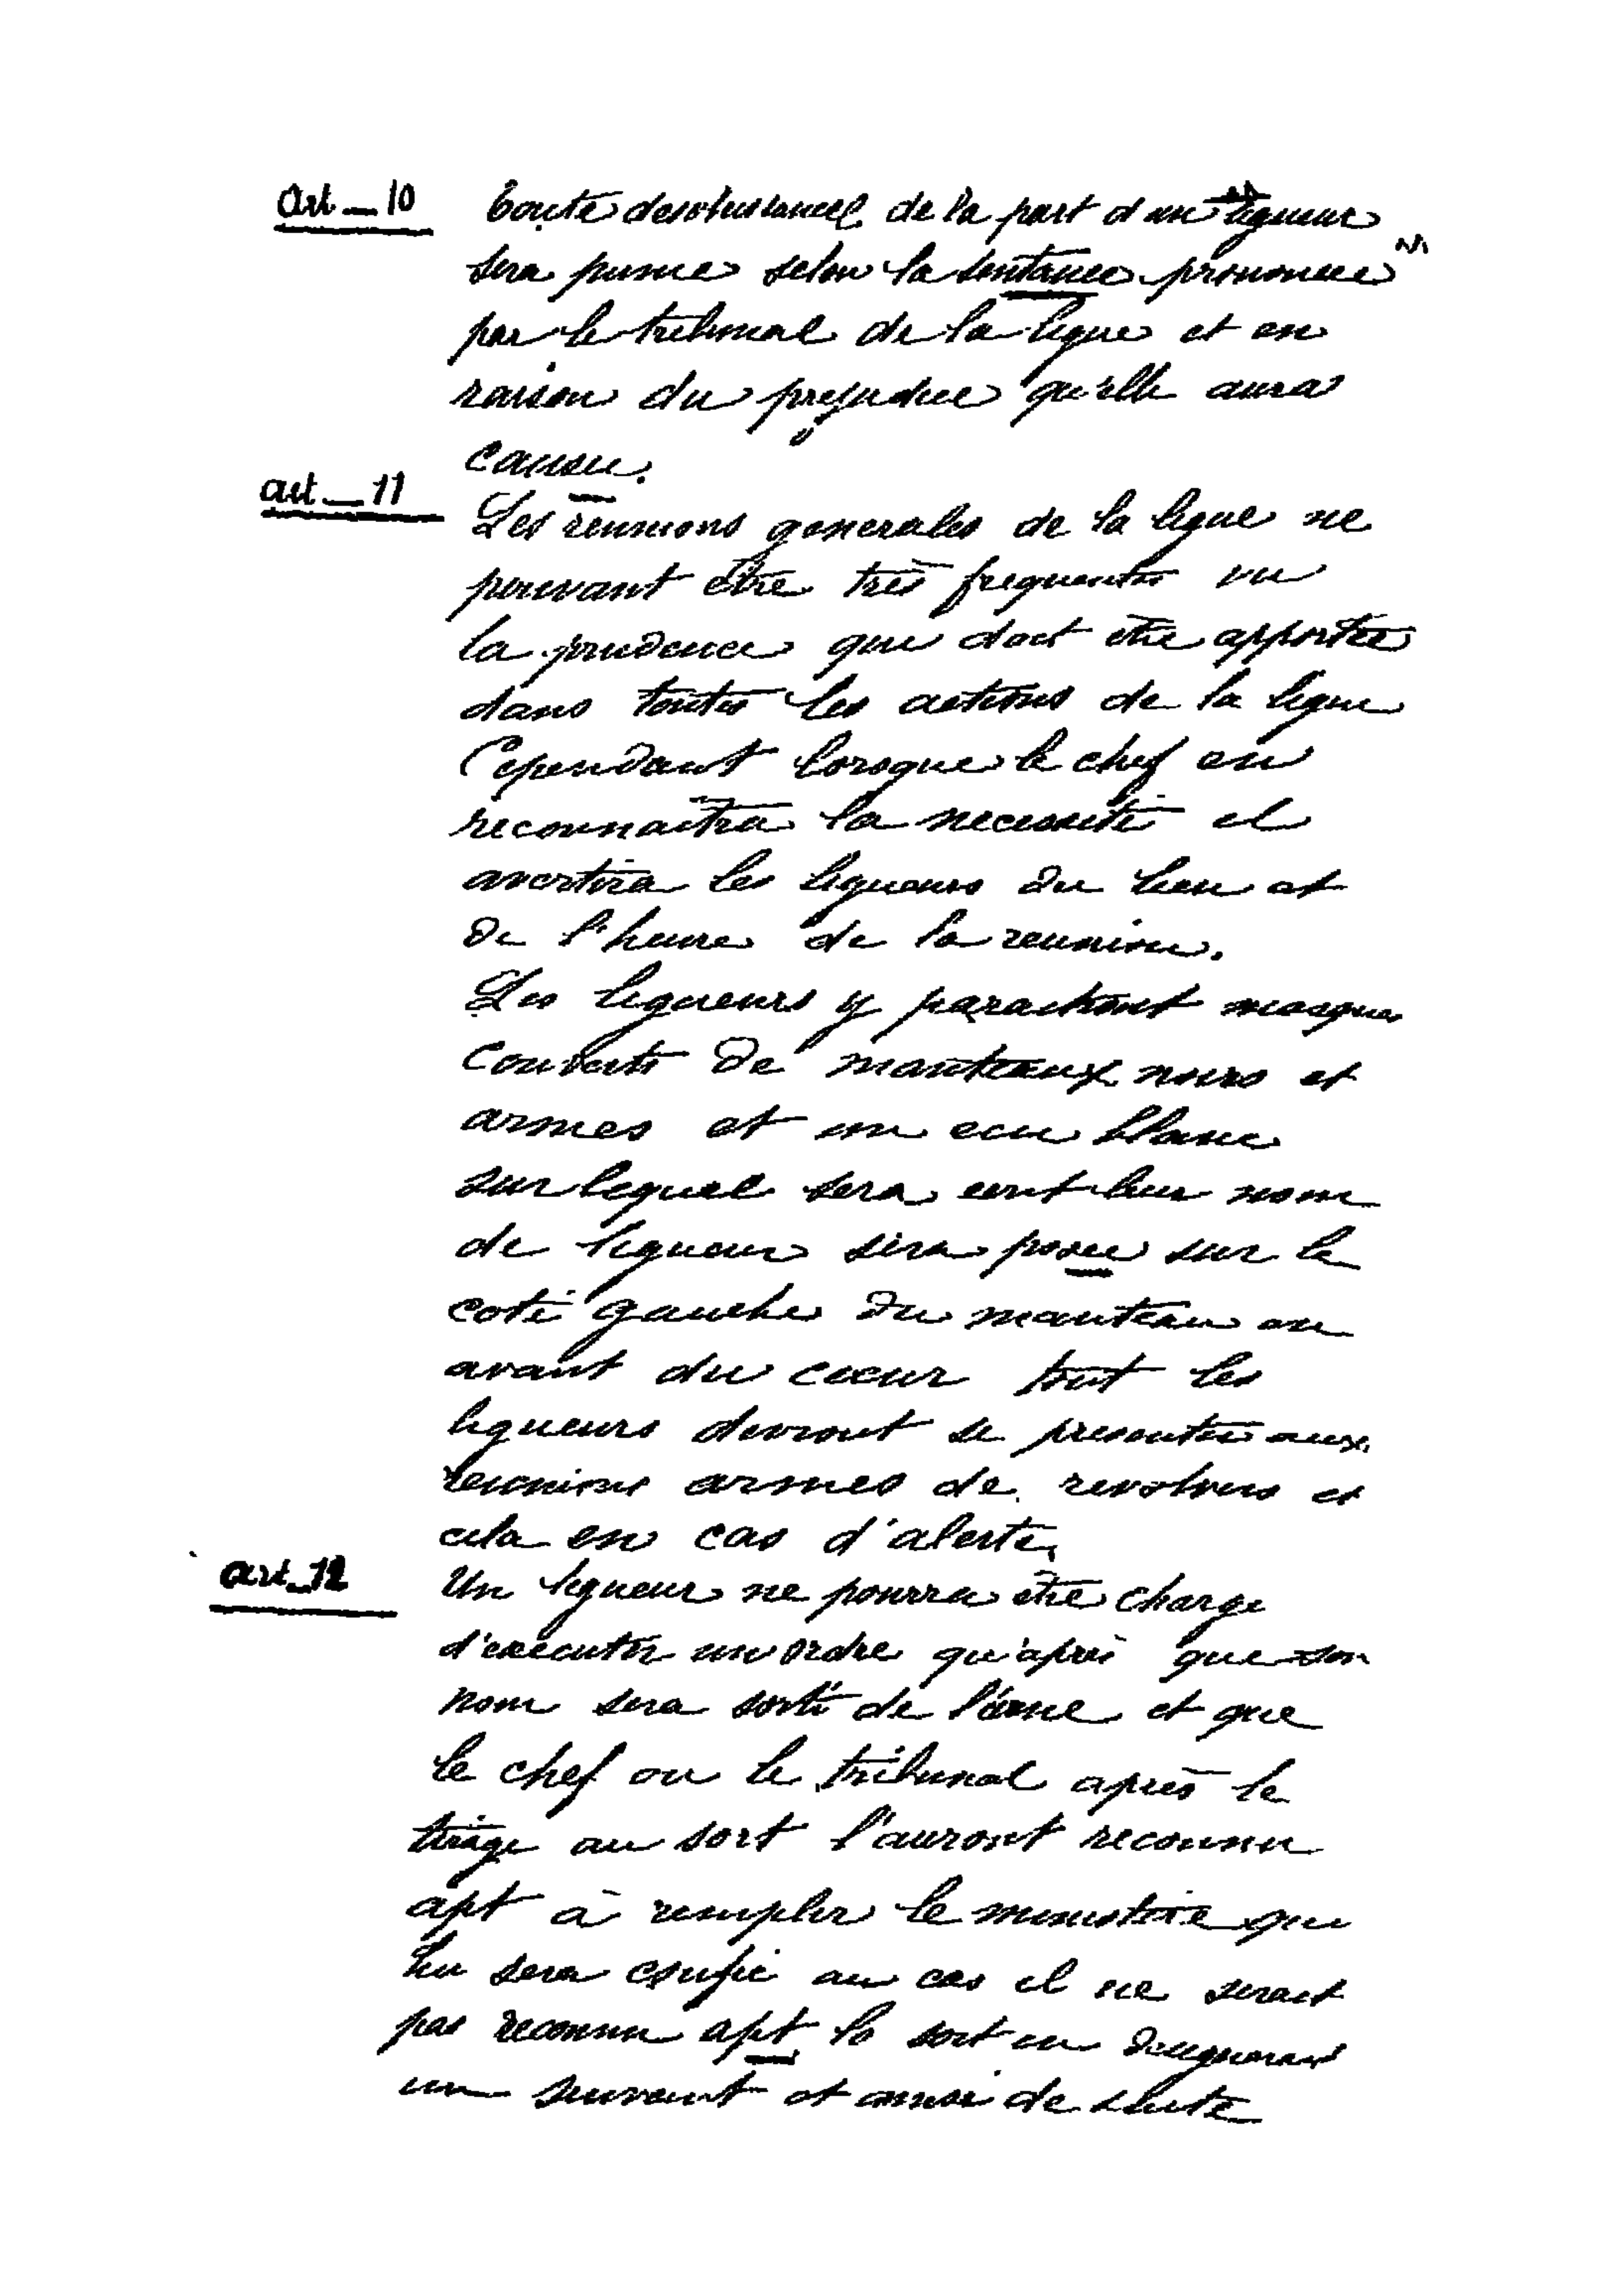 art — 10 Toute desobeissance de la part d'un ligueur
sera punie selon la sentance prononcee
par le tribunal de la ligue et en
raison du prejudice qu'elle aura
causee.
art — 11
Les reunions generales de la ligue ne
peuvant être très frequentes vu
la prudence que doit etre apportée
dans toutes les actions de la ligue
Cependant lorsque le chef en
reconnaîtra la necessité il
avertira les ligueurs du lieu et
de l'heure de la reunion.
Les ligueurs y paraitront masques
couverts de manteaux noirs et
armes et un ecu blanc
sur lequel sera ecrit leur nom
de ligueur sera posee sur le
coté gauche du manteau en
avant du cœur tout les
ligueurs devront se presenter aux
reunions armes de revolvers et
cela en cas d'alerte.
art — 12 Un ligueur ne pourra être charge
d'executer un ordre qu'après que son
nom sera sorti de l'urne et que
le chef ou le tribunal après le
tirage au sort l'auront reconnu
apt à remplir le ministère qui
lui sera confié au cas il ne serait
pas reconnu apt le sort en designerait
un suivant et ainsi de suite